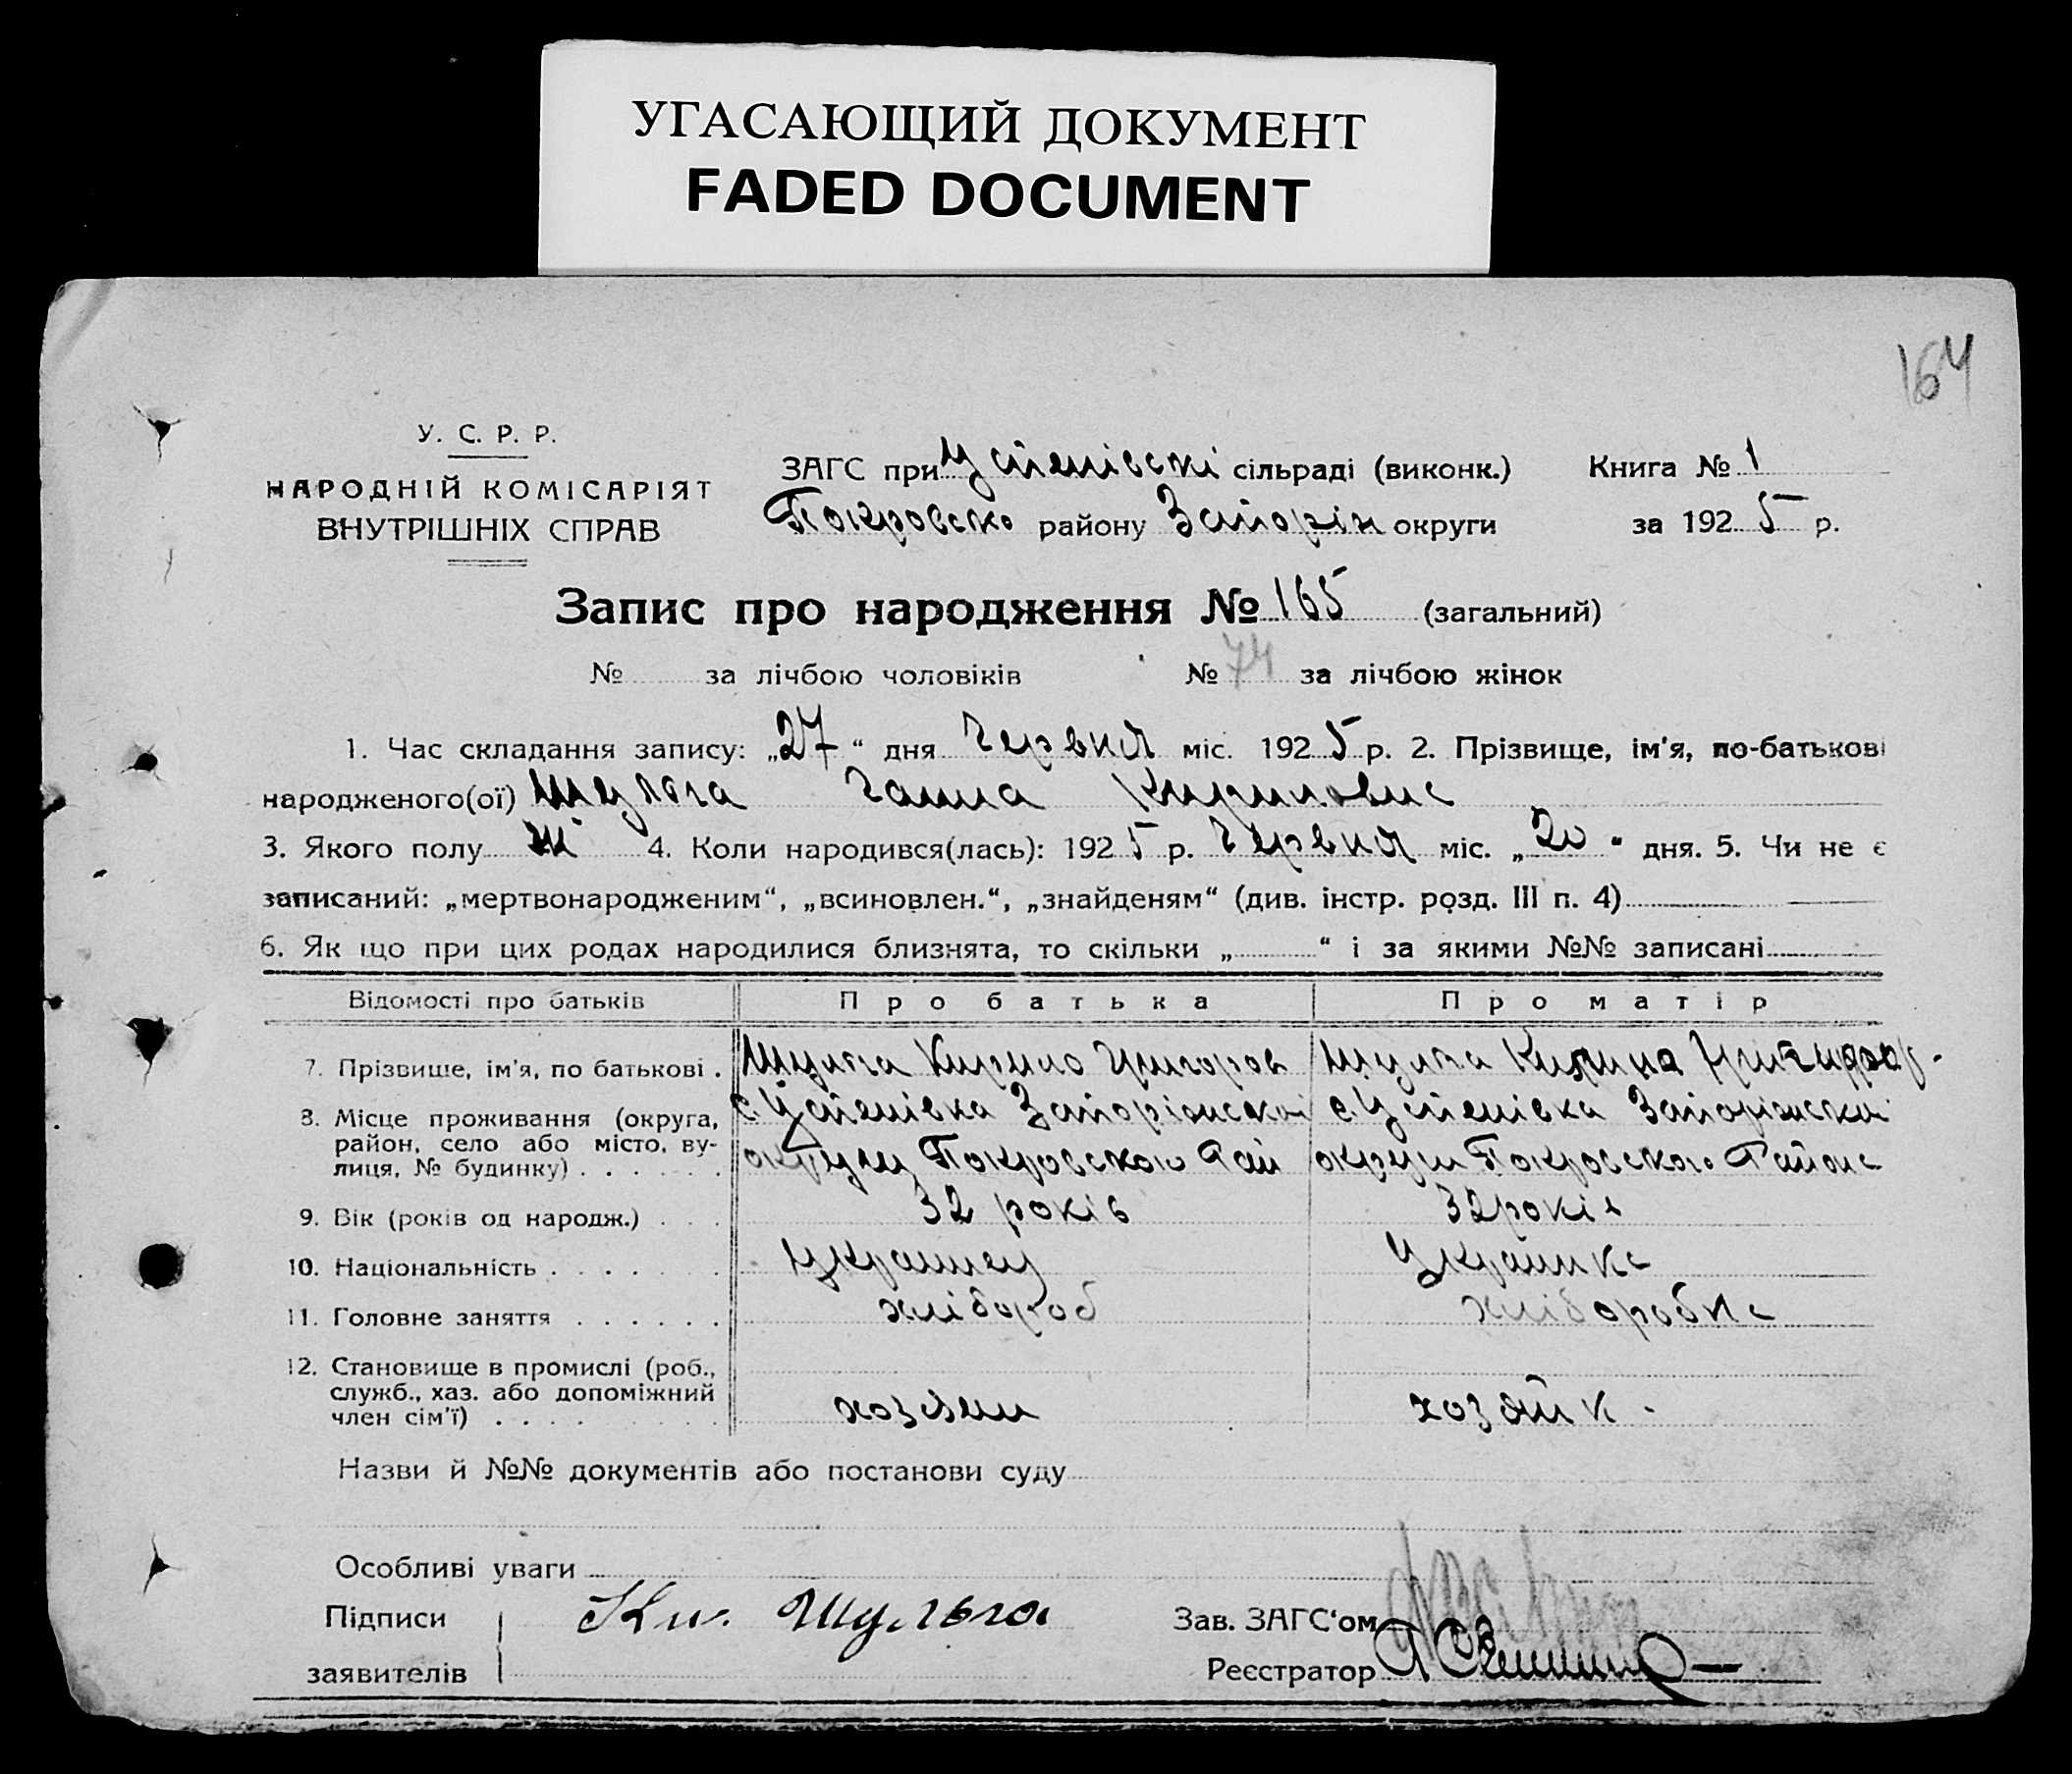 УГАСАЮЩИЙ ДОКУМЕНТ
FADED DOCUMENT
164
У. С. Р. Р.
НАРОДНІЙ КОМІСАРІЯТ
ВНУТРІШНІХ СПРАВ
ЗАГС при Успенівскі сільраді (виконк.) Книга № 1
Покровсько району Запоріж округи за 1925 р.
Запис про народження № 165 (загальний)
№ за лічбою чоловіків № 74 за лічбою жінок
1. Час складання запису: „27“ дня Червня міс. 1925 р. 2. Прізвище, ім'я, по-батькові
народженого(ої) Шульга Ганна Кириловна
3. Якого полу Ж 4. Коли народився(лась): 1925 р. Червня міс. „20“ дня. 5. Чи не є
записаний: „мертвонародженим“, „всиновлен.“, „знайденям“ (див. інстр. розд. III п. 4)
6. Як що при цих родах народилися близнята, то скільки „ “ і за якими №№ записані
Відомості про батьків Про батька Про матір
7. Прізвище, ім'я, по батькові . Шульга Кирило Григоров Шульга
8. Місце проживання (округа, район, село або місто, вулиця, № будинку) . . . . . .
с. Успенівка Запоріжської округи Покровського Рай
с. Успенівка Запоріжскої округи Покровского Района
9. Вік (років од народж.) . . . 32 років 32 років
10. Національність . . . . . . . Українец Українка
11. Головне заняття . . . . . . хлібороб хліборобка
12. Становище в промислі (роб., служб., хаз. або допоміжний член сім'ї) . . . . . . . . хозяин хозяйк.
Назви й №№ документів або постанови суду
Особливі уваги
Підписи Ки. Шульга Зав. ЗАГС'ом
заявителів Реєстратор